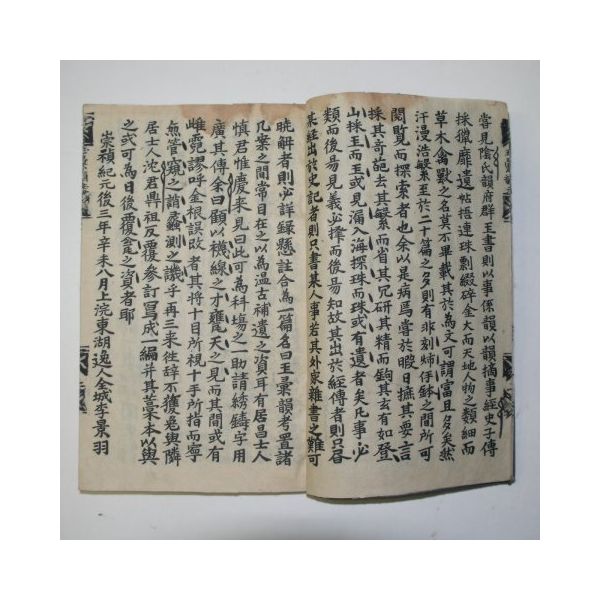 嘗見陰氏韻府群玉書則以事係韻以韻摘事經史子傳
採獵靡遺帖括連珠剽綴碎金大而天地人物之類細而
草木禽獸之名莫不畢載其於為文可謂富且多矣然
汗漫浩繁至於二十篇之多則有非刻綈伊鉢之間所可
閱覧而探索者也余以是病焉嘗於暇日摭其要言
採其奇葩去其繁而省其冗研其精而鉤其玄有如登
山採玉而玉或見漏入海探珠而珠或有遺者矣凡事必
類而後易見義必擇而後易知故其出於經傳者則只
某經出於史記者則只書某人事若其外家雜書之難可
暁解者則必詳録懸註合為一篇名曰玉彙韻考置諸
几案之間常目在之以為温古補遺之資耳有居昌士人
慎君惟慶來見曰此可為科塲之一助請綉鋳字用
廣其傳余曰顧以襪線之才甕天之見而其間或有
雌霓謬呼金根誤改者其將十目所視十手所指而寧
無管窺之誚蠡測之譏乎再三来徃辞不獲免與隣
居士人沈君鼎祖反覆參訂寫成一編并其藁本以與
之或可為日後覆瓿之資者耶
崇禎紀元後三年辛未八月上浣東湖逸人金城李景羽